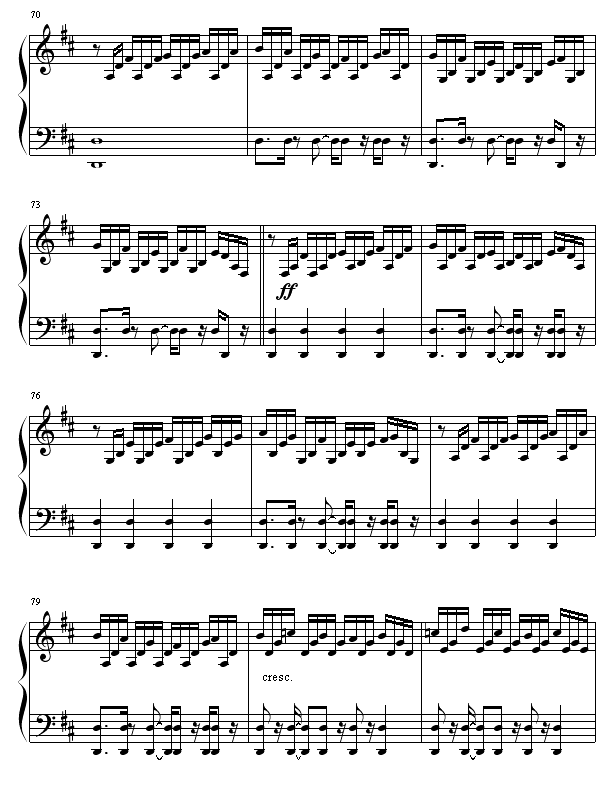 70
73
ff
76
79
cresc.